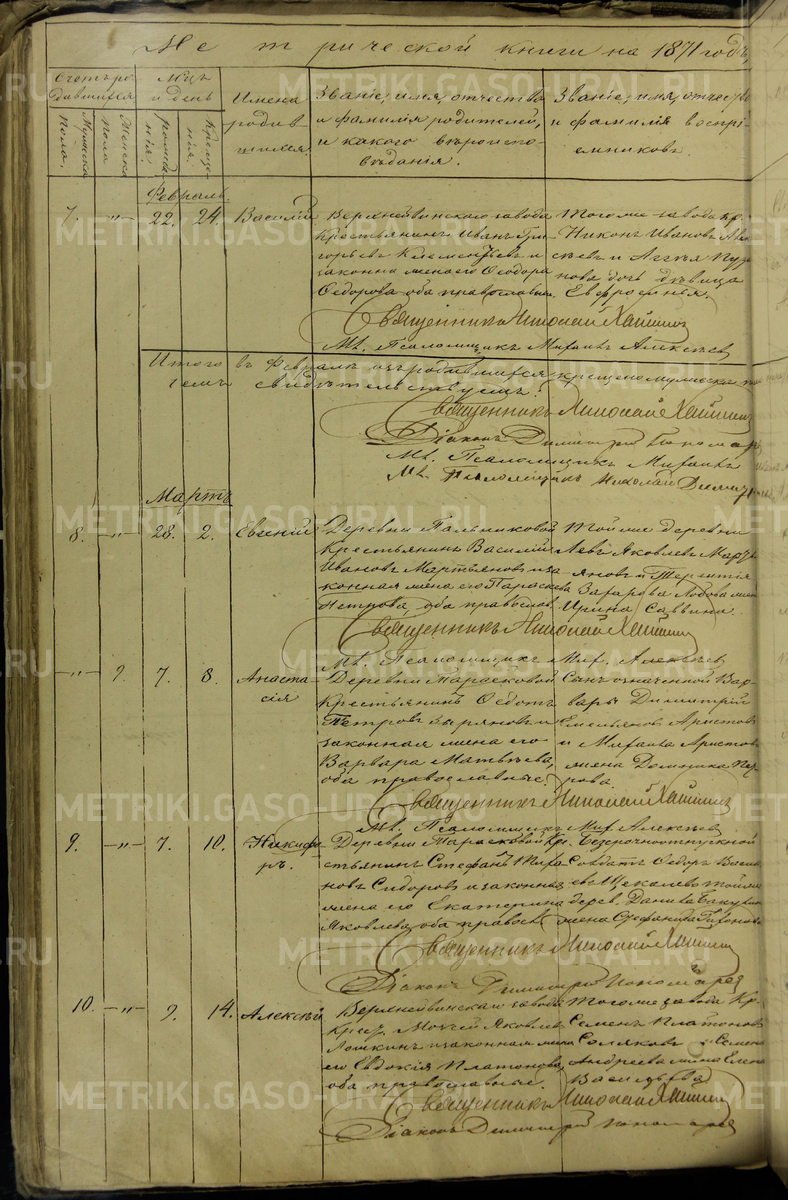 Метрической книги на 1871 годъ,
Счетъ ро-
дившихся
Мужска
пола.
Женска
пола
Мѣсяцъ
и день
рожде-
нія.
Креще-
нія.
Имена
родив-
шихся.
Званіе, имя, отчество
и фамилія родителей,
и какого вѣроиспо-
вѣданія.
Званіе, имя, отчество
и фамилія воспрі-
емниковъ.
Февраль.
7. -"- 22. 24. Василій
Верхнейвинскаго завода
Крестьянинъ Иванъ Гри-
горьевъ Клементьевъ и
законна жена его Ѳеодора
Ѳедорова оба православн.
Тогоже завода кр.
Никонъ Ивановъ
дочь дѣвица
Евфросинья.
Священникъ Николай
И. Псаломщикъ Михаилъ Алексѣев
Итого въ Февралѣ
чемъ свидѣтельствуемъ:
Священникъ Николай
Діаконъ Димитрій Пономар
Псаломщикъ Михаилъ
Псаломщикъ Николай
Мартъ
8. -"- 28. 2. Евгеній
Деревни Пальниковой
Крестьянинъ Василій
Ивановъ Мартьянов и за
конная жена его Параскева
Петрова, оба православ.
Тойже деревни
Левъ Яковлевъ Марть
яновъ и Терентія
Захарова жена
Ирина Саввина.
Священникъ Николай
И. Псаломщикъ Мих. Алексѣев
-"- 2. 7. 8. Анаста-
сія
Деревни Тарасковой
Крестьянинъ Ѳедотъ
Петровъ Зыряновъ и
законная жена его
Варвара Матвѣева,
оба православные.
Димитрій
Емельяновъ Аристов
и Михаила Аристов
жена Домника Пет-
рова.
Священникъ Николай
И. Псаломщикъ Мих. Алексѣев
9. -"- 7. 10. Никифо-
ръ.
Деревни Тарасковой Кр.
стьянинъ Стефанъ
Сидоровъ и законная
жена его Екатерина
Яковлева, оба правосл.
Безсрочноотпускной
Солдатъ Ѳедоръ Васи
тойже
дерев. Данила
жена Стефанида
Священникъ Николай
Діаконъ Димитрій Пономарев
10. -"- 9. 14. Алексѣй
Верхнейвинскаго завода
Крест. Моисей Яковлев
Лошкинъ и законная жена
его Евдокія Платонова,
оба православные.
Тогоже завода Кр.
Семенъ Платоновъ
Соляковъ и Семена
Андреева жена Елена
Васильева
Священникъ Николай
Діаконъ Димитрій Пономарев
METRIKI.GASO-URAL.RU